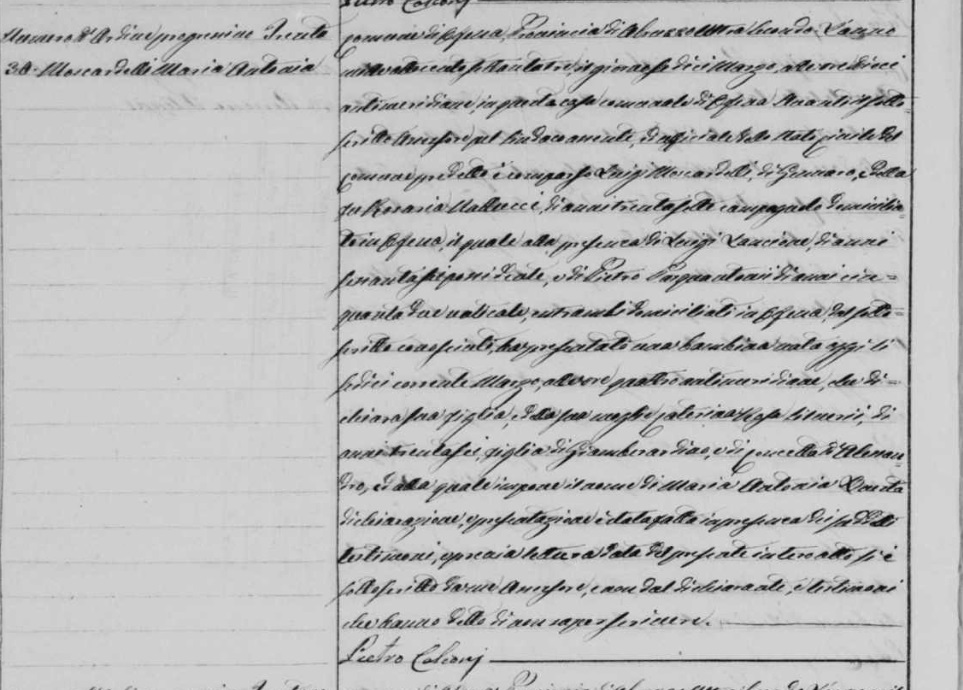 Pietro Colconj
Numero d'Ordine progressivo Trenta
30. Moscardelli Maria Antonia
comune di Ofena, Provincia di Abruzzo Ultra Secondo L'anno
mille ottocento settantatre, il giorno sedici Marzo, alle ore dieci
antimeridiane, in questa casa comunale di Ofena Avanti il sotto
scritto Assessore pel Sindaco assente, ed ufficiale dello Stato civile del
comune predetto è comparso Luigi Moscardelli, di Gennaro, e della
fu Rosaria Mallucci, di anni trentasette campagnolo domicilia-
to in Ofena, il quale alla presenza di Luigi Lancione, di anni
sessantasei possidente, e di Pietro Pasquantonii di anni cin=
quantadue vaticale, entrambi domiciliati in Ofena, dal sotto=
scritto conosciuti, ha presentato una bambina nata oggi li
sedici corrente Marzo, alle ore quattro antimeridiane, che di=
chiara sua figlia, e della sua moglie Caterina Rosa Silverii, di
anni trentasei, figlia di Giamberardino, e di Concetta d'Alessan-
dro, ed alla quale impone il nome di Maria Antonia Questa
dichiarazione, e presentazione è stata fatta in presenza dei suddetti
testimoni, e previa lettura data del presente intero atto si è
sottoscritto da me Assessore, e non dal dichiarante, e testimoni
che hanno detto di non saper scrivere.
Pietro Colconj